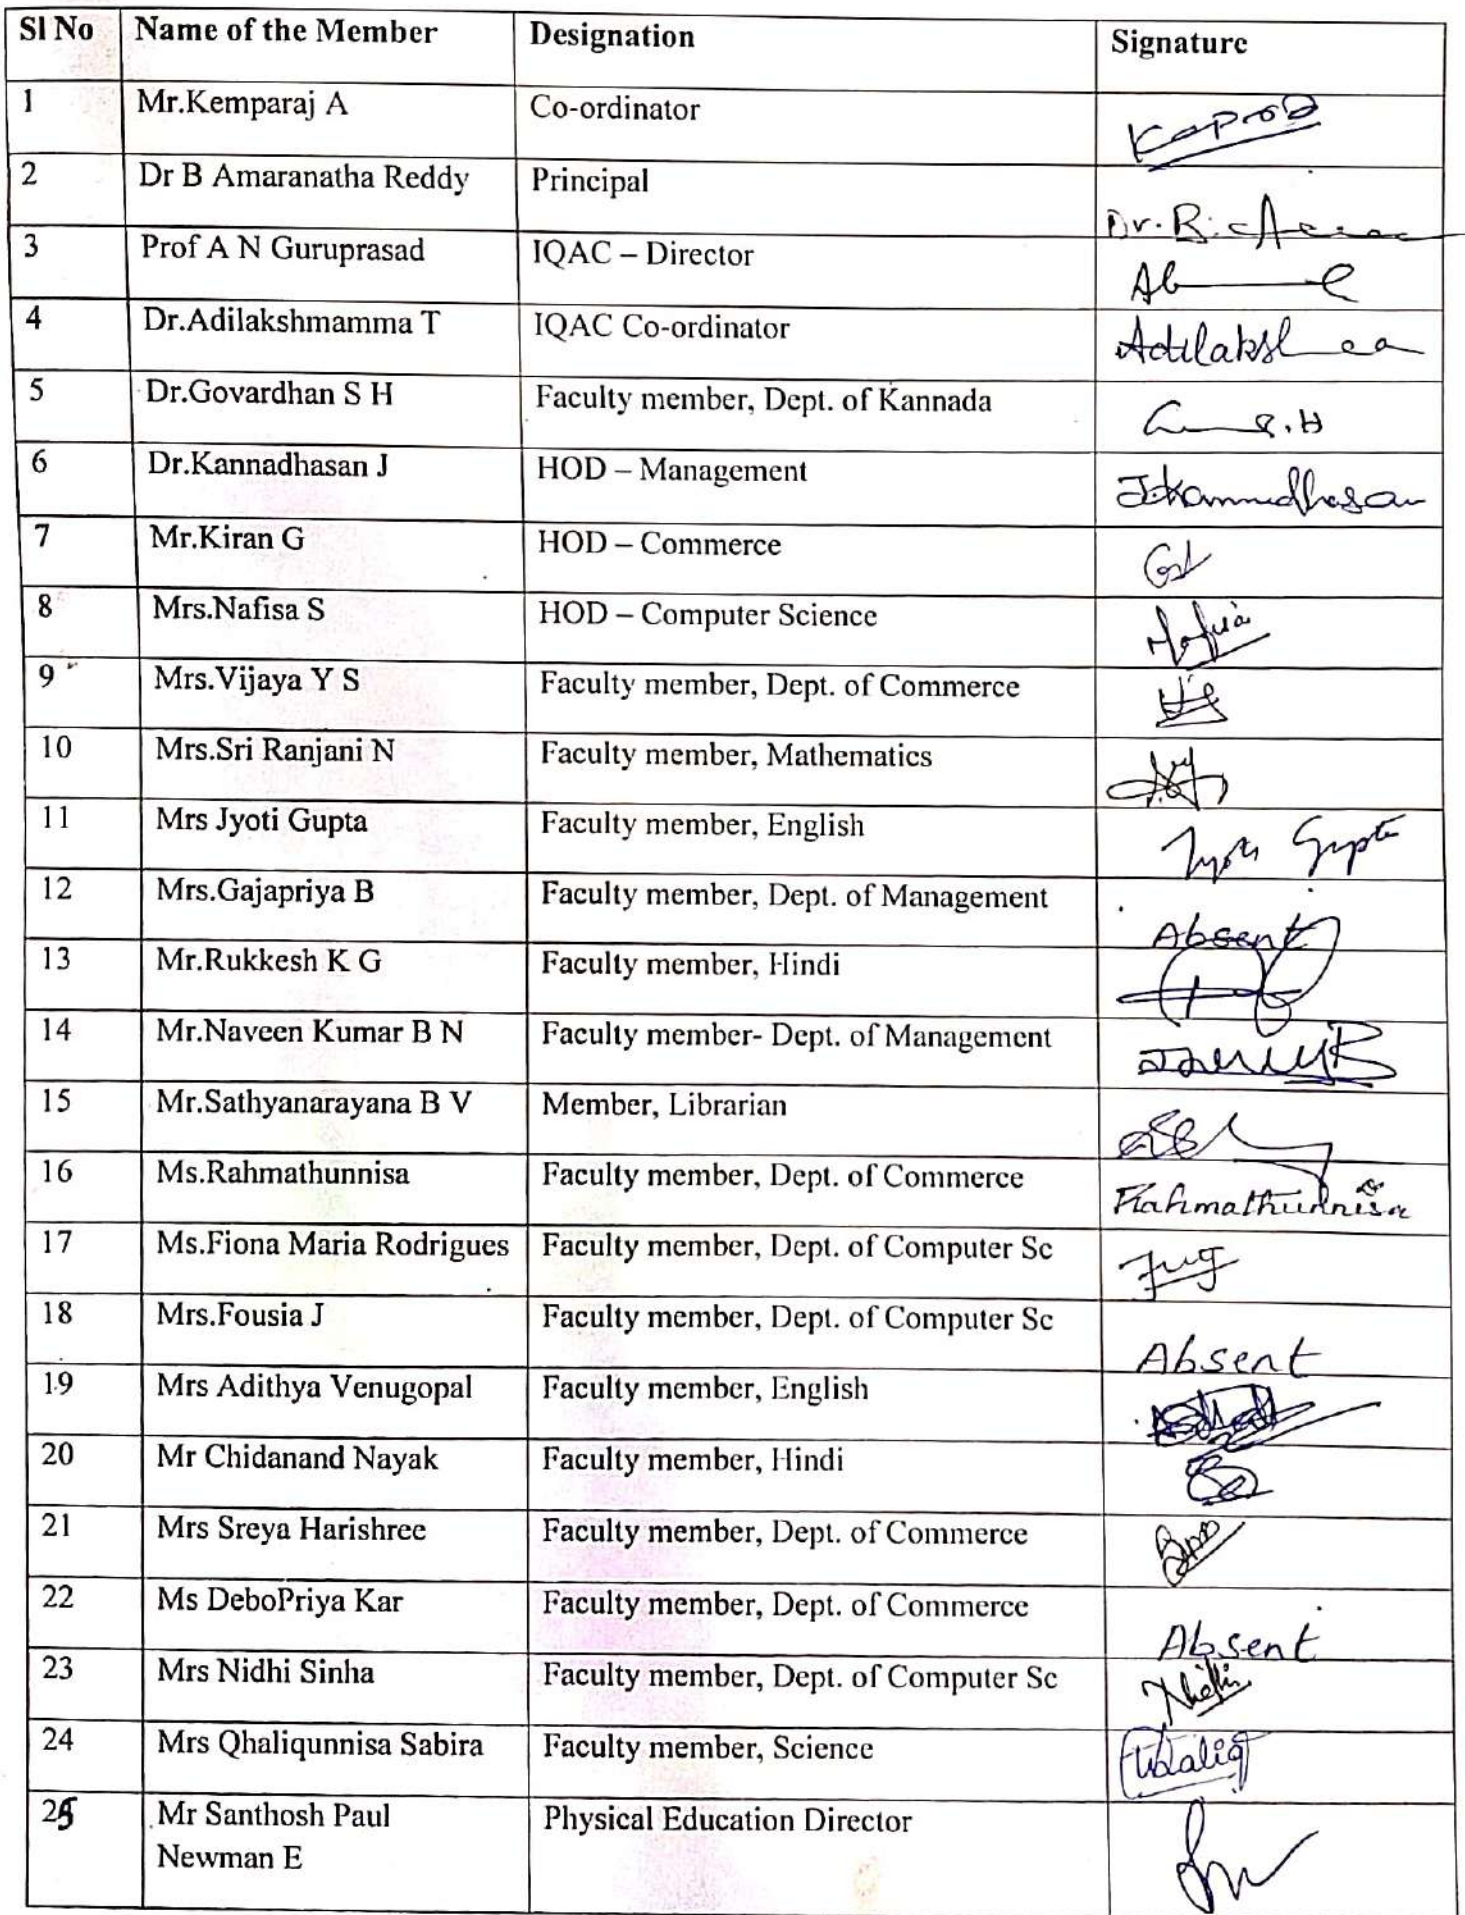 Sl No Name of the Member Designation Signature
1 Mr.Kemparaj A Co-ordinator
2 Dr B Amaranatha Reddy Principal Dr. B.
3 Prof A N Guruprasad IQAC – Director
4 Dr.Adilakshmamma T IQAC Co-ordinator
5 Dr.Govardhan S H Faculty member, Dept. of Kannada
6 Dr.Kannadhasan J HOD – Management
7 Mr.Kiran G HOD – Commerce
8 Mrs.Nafisa S HOD – Computer Science
9 Mrs.Vijaya Y S Faculty member, Dept. of Commerce
10 Mrs.Sri Ranjani N Faculty member, Mathematics
11 Mrs Jyoti Gupta Faculty member, English Jyoti Gupta
12 Mrs.Gajapriya B Faculty member, Dept. of Management Absent
13 Mr.Rukkesh K G Faculty member, Hindi
14 Mr.Naveen Kumar B N Faculty member- Dept. of Management
15 Mr.Sathyanarayana B V Member, Librarian
16 Ms.Rahmathunnisa Faculty member, Dept. of Commerce Rahmathunnisa
17 Ms.Fiona Maria Rodrigues Faculty member, Dept. of Computer Sc
18 Mrs.Fousia J Faculty member, Dept. of Computer Sc Absent
19 Mrs Adithya Venugopal Faculty member, English
20 Mr Chidanand Nayak Faculty member, Hindi
21 Mrs Sreya Harishree Faculty member, Dept. of Commerce
22 Ms DeboPriya Kar Faculty member, Dept. of Commerce Absent
23 Mrs Nidhi Sinha Faculty member, Dept. of Computer Sc Nidhi
24 Mrs Qhaliqunnisa Sabira Faculty member, Science
25 Mr Santhosh Paul Physical Education Director
Newman E